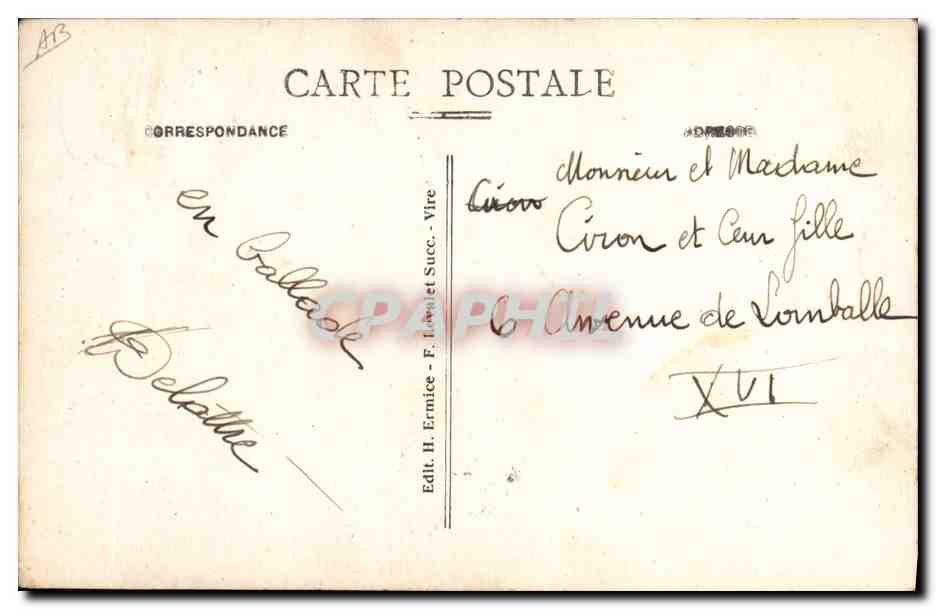 AB
CARTE POSTALE
CORRESPONDANCE
ADRESSE
en ballade
Delattre
Edit. H. Ermice - F. Levalet Succ. - Vire
Monsieur et Madame
Ciron
Ciron et Leur fille
6 Avenue de Lomballe
XVI
CPAPHIL